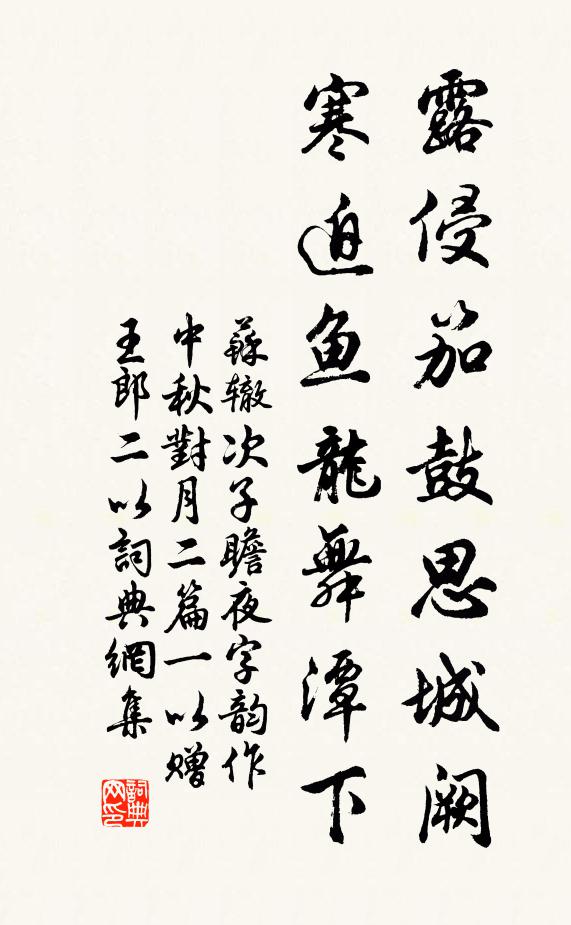 露侵笳鼓思城阙
寒迫鱼龍舞潭下
蘇辙次子瞻夜字韵作
中秋對月二篇一以赠
王郎二以詞典網集
詞典网印